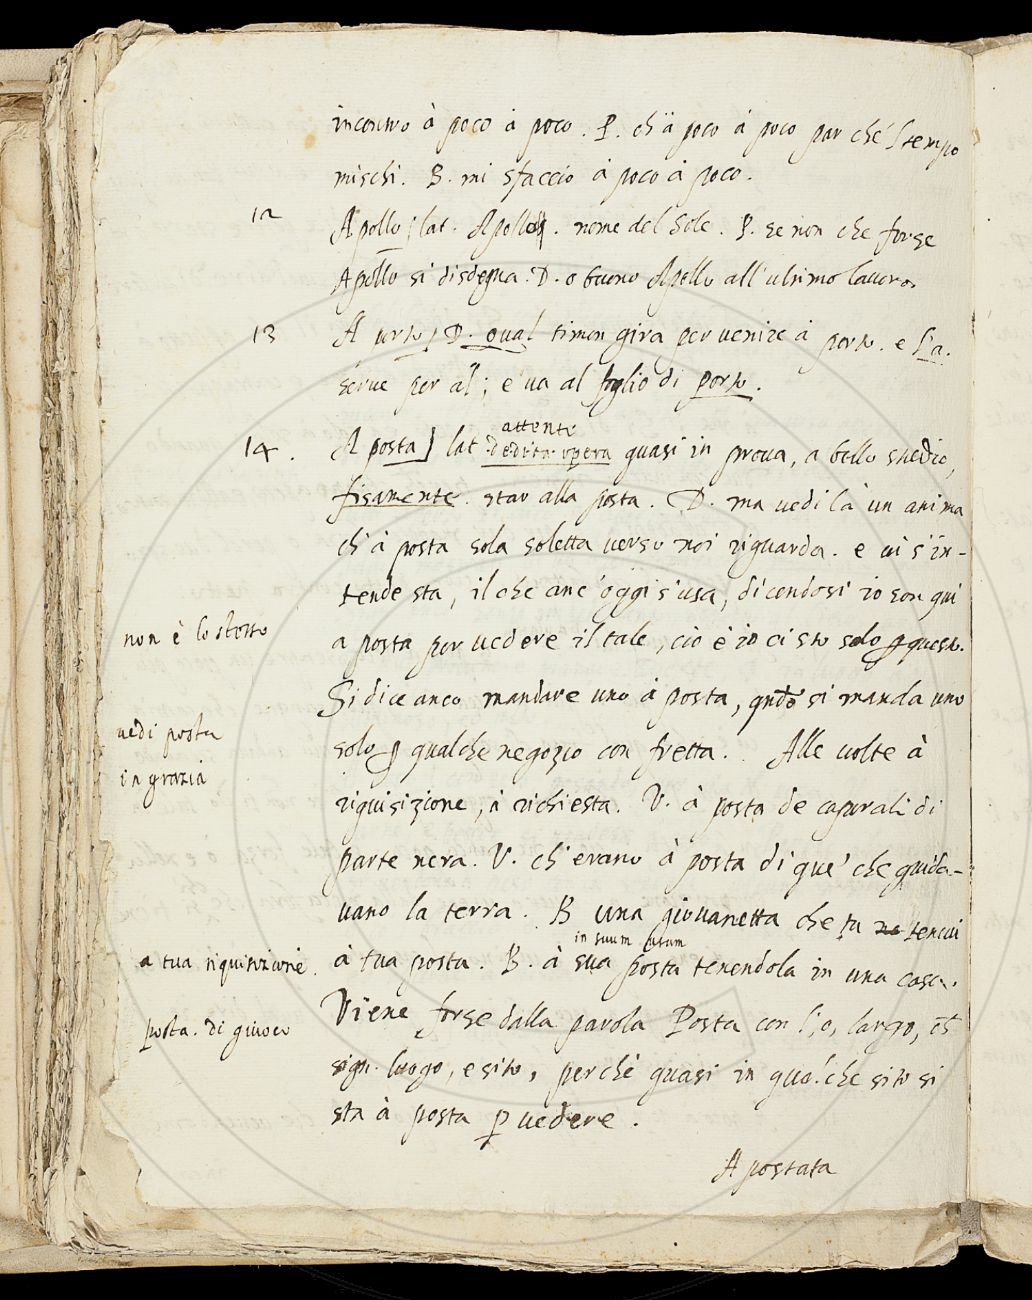 incontro à poco à poco. P. ch'à poco à poco par che 'l tempo
mischi. B. mi sfaccio à poco à poco.
12 Apollo] lat. Apollo. nome del Sole. P. se non che forse
Apollo si disdegna. D. o buono Apollo all'ultimo lavoro.
13 A porto] D. qual timon gira per venire à porto. e l'a.
serve per al; e va al foglio di porto.
attente
14. A posta] lat. dedita opera quasi in prova, a bello studio,
fisamente. star alla posta. D. ma vedi là un anima
ch'à posta sola soletta verso noi riguarda. e vi s'in-
tende sta, il che anc'oggi s'usa, dicendosi io son qui
non è lo stesso
a posta per vedere il tale, ciò è io ci sto solo p questo.
Si dice anco mandare uno à posta, qndo si manda uno
vedi posta
solo p qualche negozio con fretta. Alle volte à
in grazia
riquisizione, à richiesta. V. à posta de caporali di
parte nera. V. ch'erano à posta di que' che guida-
vano la terra. B una giovanetta che tu ne tenevi
in suum usum
a tua riquisizione.
à tua posta. B. à sua posta tenendola in una casa.
posta di giuoco
Viene forse dalla parola Posta con l'o, largo,
sign. luogo, e sito, perchè quasi in qualche sito si
sta à posta p vedere.
Apostata